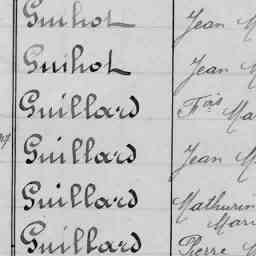 Guihot Jean M
Guihot Jean M
Guillard Fois Ma
Guillard Jean M
Guillard Mathurin
Mari
Guillard Pierre